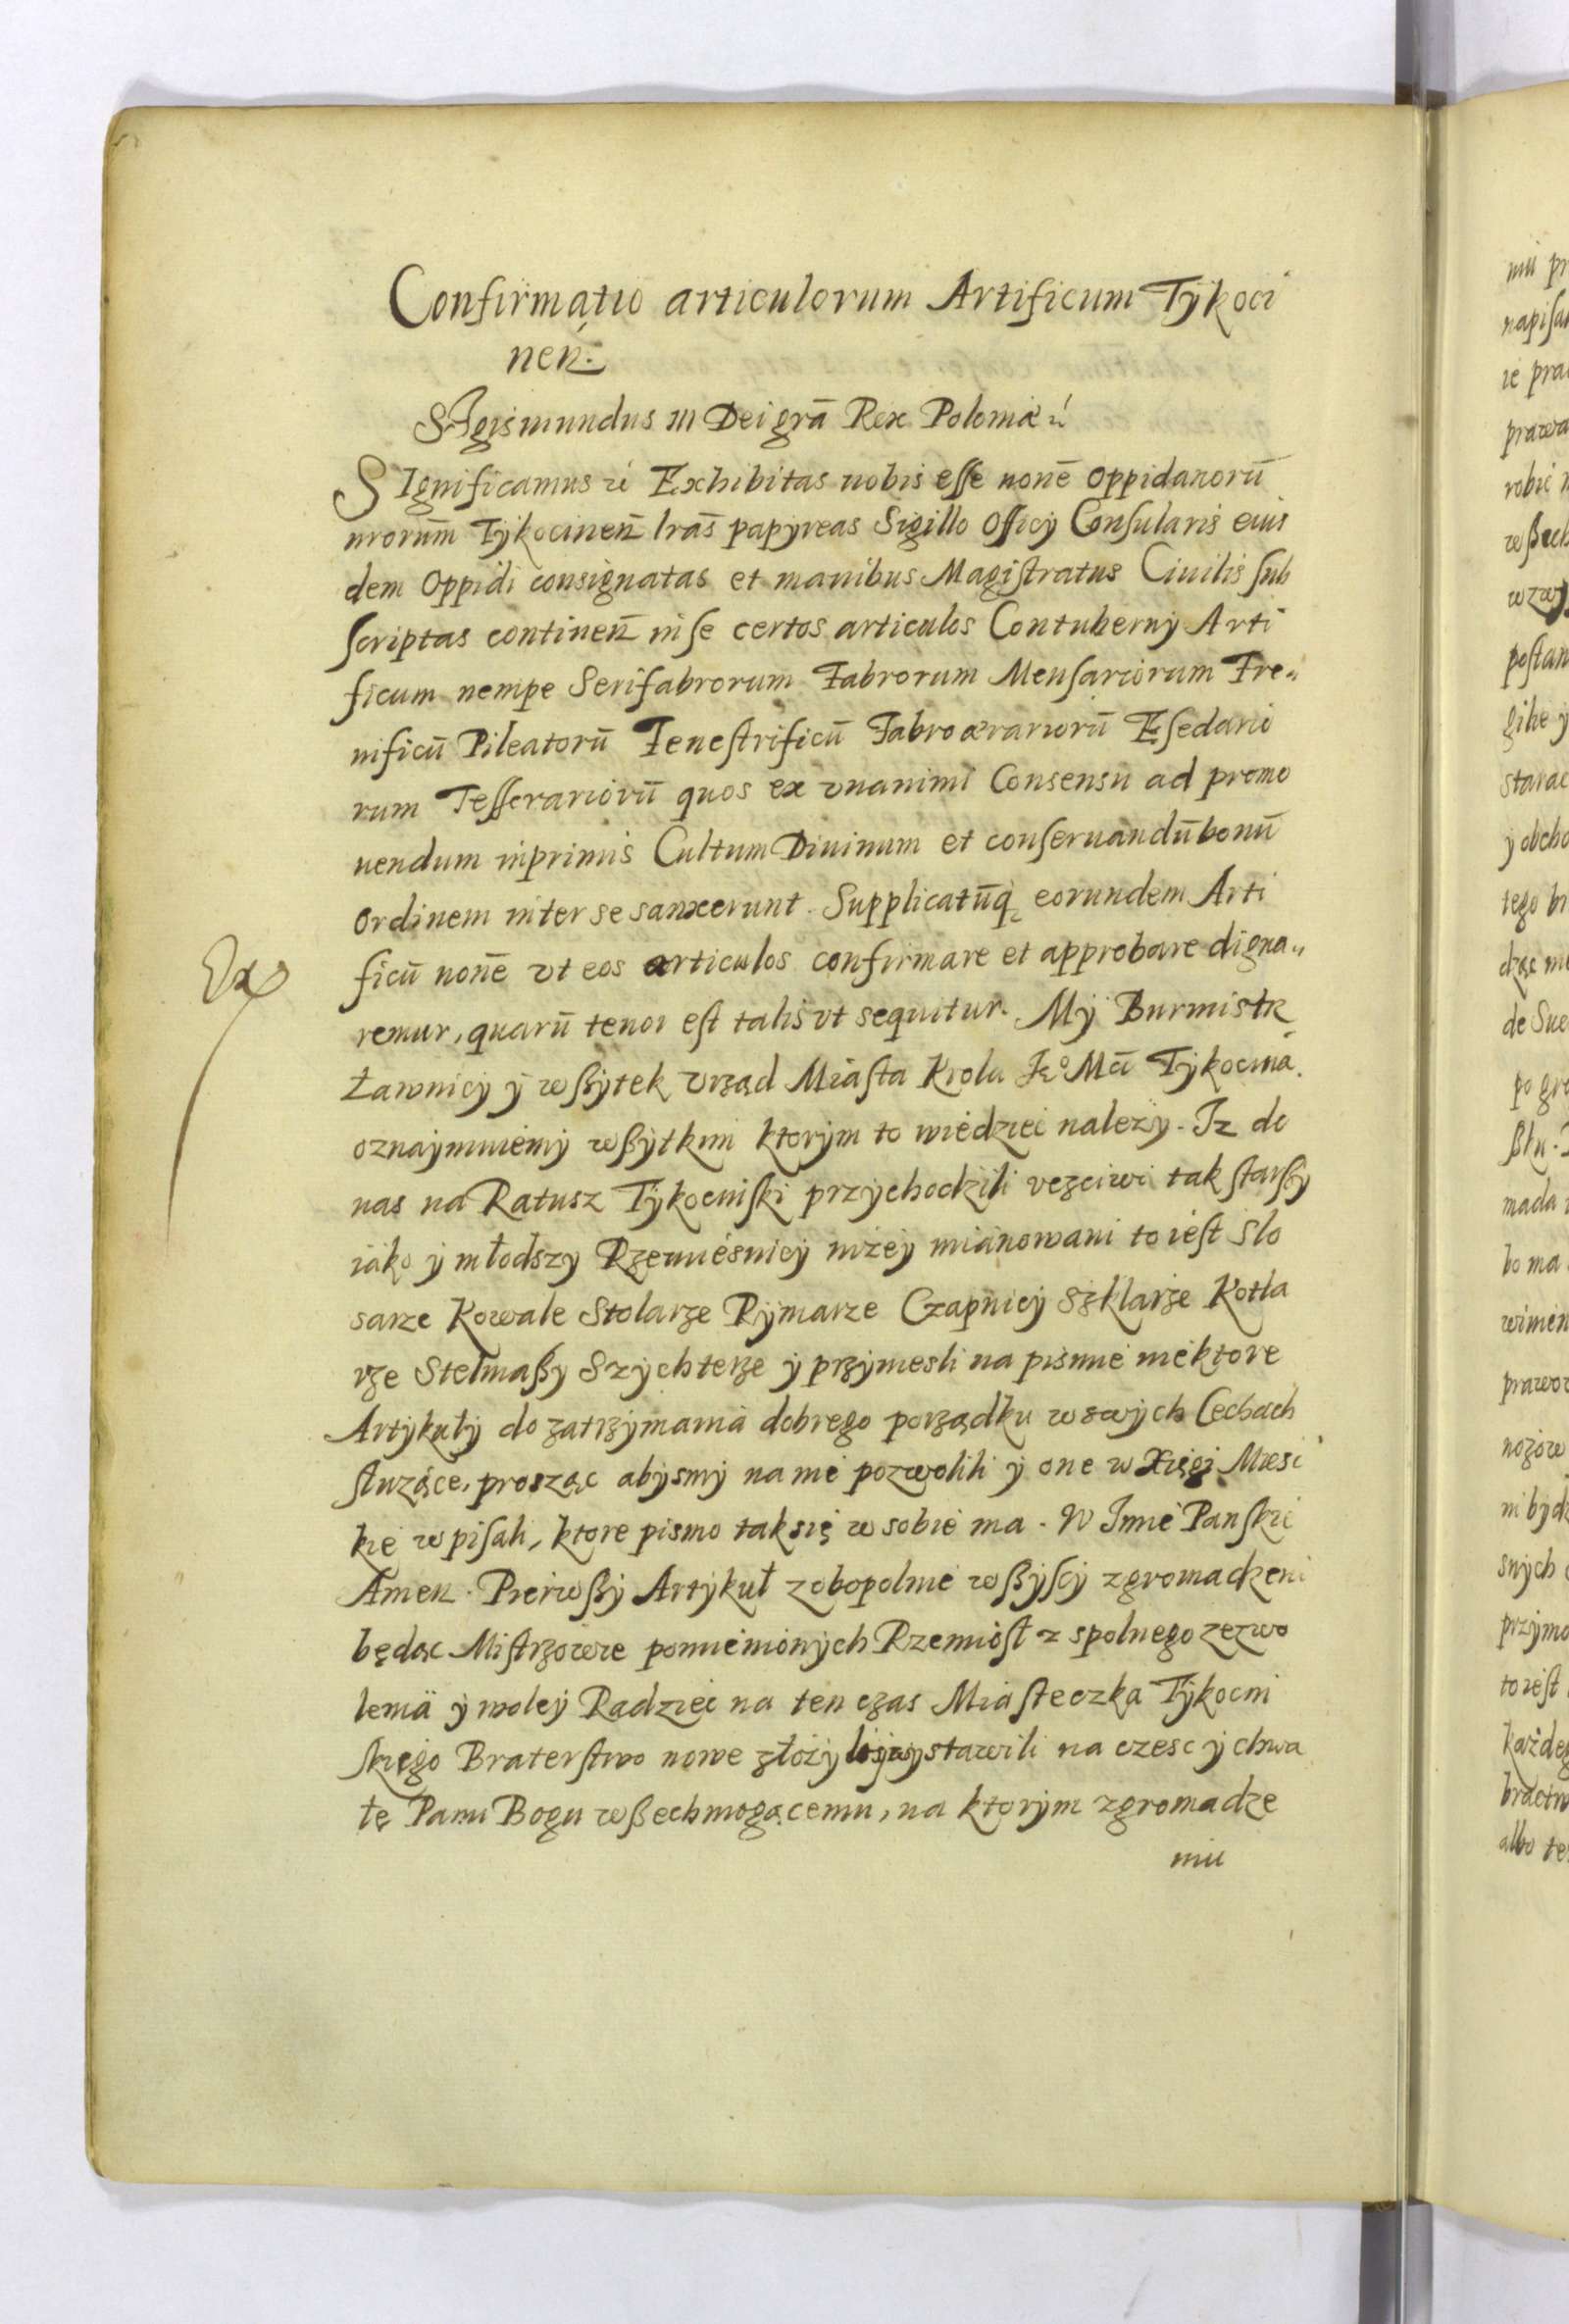 Confirmatio articulorum Artificum Tÿkoci
nen.
SIgismundus III Dei grã Rex Poloniæ
SIgnificamus Exhibitas nobis eſſe nonē oppidanorū
nrorum̄ Tÿkocinen lrãs papÿreas Sigillo officÿ Conſularis eius
dem oppidi consignatas et manibus Magiſtratus Ciuilis ſub
ſcriptas continen in ſe certos articulos Contubernÿ Arti
ficum nempe Serifabrorum Fabrorum Menſariorum Fre„
nificū Pileatorū Feneſtrificū Fabro ærariorū Eſſedario
rum Teſſerariorū quos ex vnanimi Consensu ad promo
uendum inprimis Cultum Diuinum et conſeruandū bonū
ordinem inter se sanxerunt. Supplicatūq eorundem Arti
ficū nonē vt eos articulos confirmare et approbare digna„
remur, quarū tenor eſt talis vt sequitur. Mÿ Burmistrz
Ławnicÿ ÿ wßÿtek vrząd Miaſta Krola Je° Mci Tÿkocina.
oznaÿmuiemÿ wßÿtkim ktorÿm to wiedziec należÿ. Iz do
nas na Ratusz Tÿkocinſki przÿchodzili vczciwi tak ſtarßÿ
iako ÿ młodszy Rzemieśnicÿ niżeÿ mianowani to ieſt Slo
sarze Kowale Stolarze Rÿmarze Czapnicÿ Szklarze Kotla
rze Stelmaßy Szÿchterze ÿ przÿniesli na pismie niektore
Artÿkułÿ do zatrzÿmania dobrego porządku w swÿch Cechach
ſłuzące, prosząc abÿsmÿ na nie pozwolili ÿ one w Xięgi Miesc
kie wpiſali, ktore pismo tak się w sobie ma. W Imie Panſkie
Amen. Pierwßÿ Artÿkuł zobopolnie wßÿſcÿ zgromadzeni
będąc Miſtrzowie pomienionÿch Rzemioſł z spolnego zezwo
lenia ÿ woleÿ Radziec na ten czas Miaſteczka Tÿkocin
ſkiego Braterſtwo nowe złożÿli ÿ wystawili na czesc ÿ chwa
łę Panu Bogu wßechmogącemu, na ktorÿm zgromadze
niu